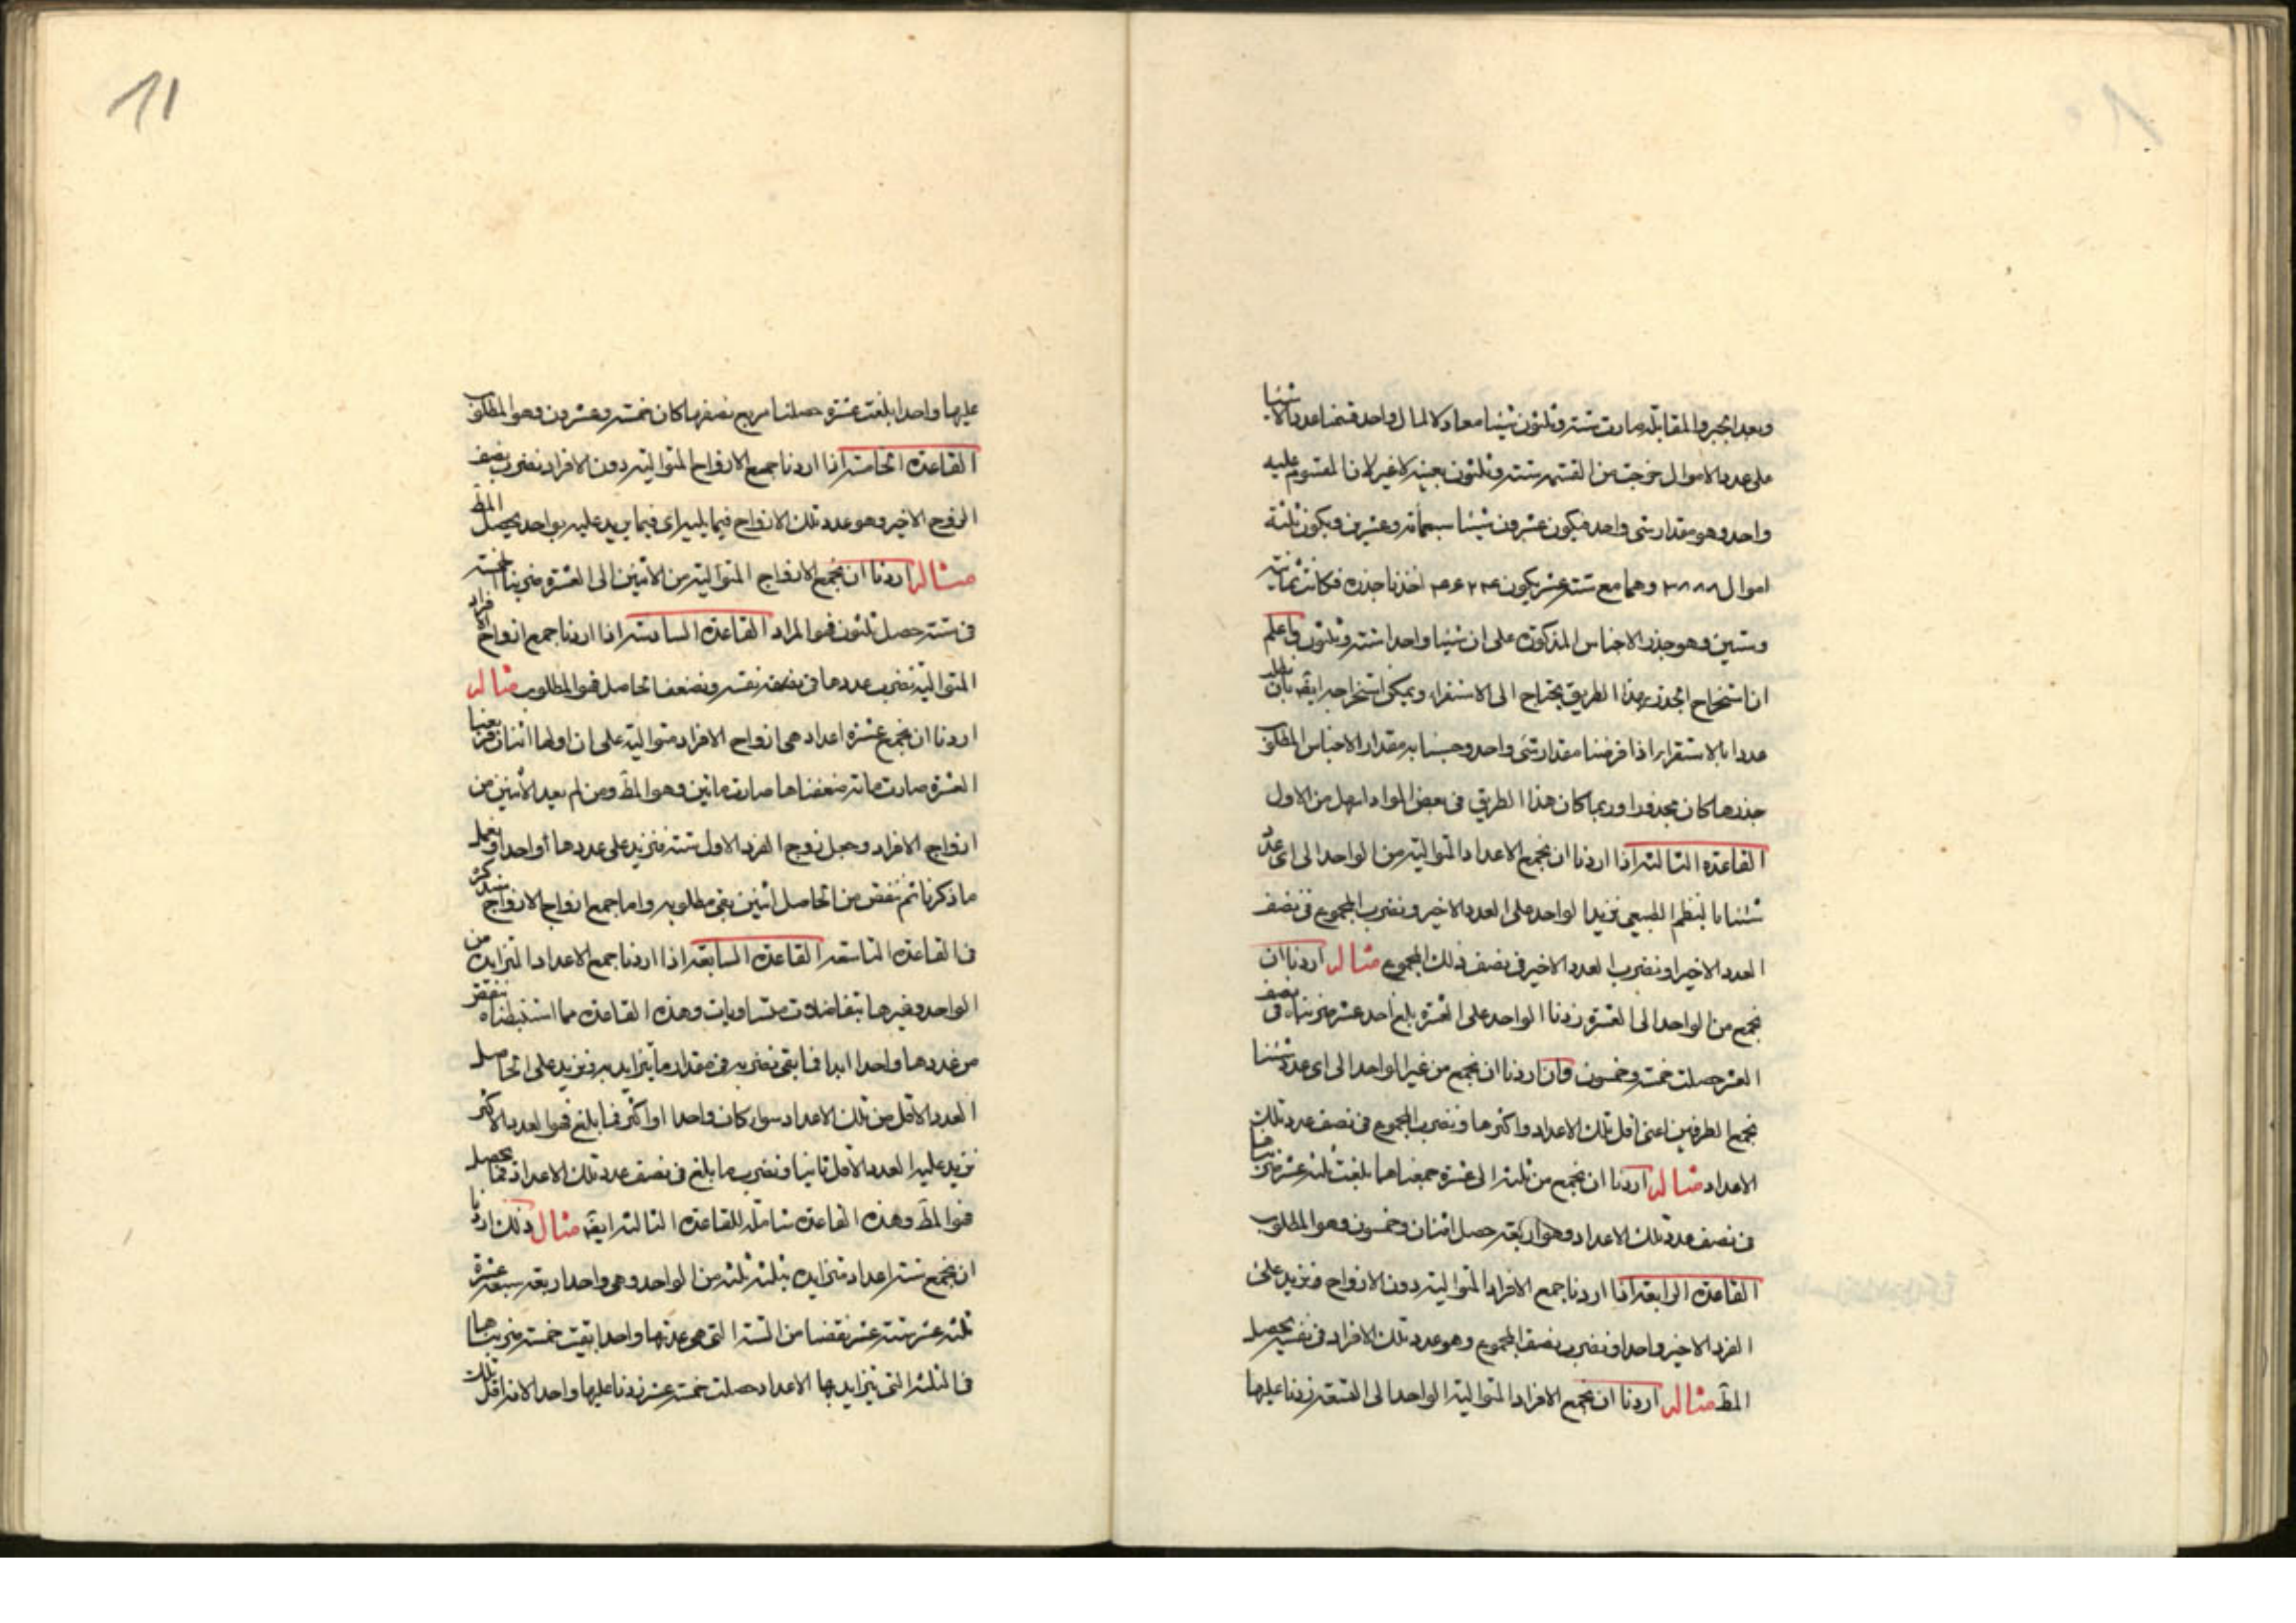 وبعد الجبر والمقابلة صارت ستة وثلثون شيئا معادلا لمال واحد قسمنا عدد الاشيا
على عدد الاموال خرجت من القسمة ستة وثلثون بعينه لا غير لان المقسوم عليه
واحد وهو مقدار شئ واحد فيكون عشرون شيئا سبعمائة وعشرين ويكون ثلثة
اموال ٣٨٨٨ وهما مع ستة عشر يكون ٤٦٢٤ اخذنا جذره فكانت ثمانية
وستين وهو جذر الاجناس المذكورة على ان شيئا واحدا ستة وثلثون واعلم
ان استخراج الجذر بهذا الطريق يحتاج الى الاستقراء ويمكن استخراجه ايضا بان
عددا بالاستقراء اذا فرضنا مقدار شئ واحد وحسبنا به مقدار الاجناس المطلوب
جذرها كان مجذورا وربما كان هذا الطريق في بعض المواد اسهل من الاول
القاعدة الثالثة اذا اردنا ان نجمع الاعداد المتوالية من الواحد الى اى عدد
شئنا بالنظم الطبيعى نزيد الواحد على العدد الاخير ونضرب المجموع في نصف
العدد الاخير او نضرب العدد الاخير في نصف ذلك المجموع مثاله اردنا ان
نجمع من الواحد الى العشرة زدنا الواحد على العشرة بلغ احد عشر ضربناه في نصف
العشر حصلت خمسة وخمسون وان اردنا ان نجمع من غير الواحد الى اى عدد شئنا
نجمع الطرفين اعنى اقل تلك الاعداد واكثرها ونضرب المجموع في نصف عدد تلك
الاعداد مثاله اردنا ان نجمع من ثلثة الى عشرة جمعناهما بلغت ثلثة عشر ضربناها
في نصف عدد تلك الاعداد وهو اربعة حصل اثنان وخمسون وهو المطلوب
القاعدة الرابعة اذا اردنا جمع الافراد المتوالية دون الازواج فنزيد على
الفرد الاخير واحدا ونضرب نصف المجموع وهو عدد تلك الافراد في نفسه يحصل
المط مثاله اردنا ان نجمع الافراد المتوالية الواحد الى التسعة زدنا عليها
11
عليها واحدا بلغت عشرة حصلنا مربع نصفها كان خمسة وعشرون وهو المطلوب
القاعدة الخامسة اذا اردنا جمع الازواج المتوالية دون الافراد نضرب نصف
الزوج الاخير وهو عدد تلك الازواج فيما يليه اى فيما يزيد عليه بواحد يحصل المط
مثاله اردنا ان نجمع الازواج المتوالية من الاثنين الى العشرة ضربنا الخمسة
في ستة حصل ثلثون فهو المراد القاعدة السادسة اذا اردنا جمع ازواج الافراد
المتوالية نضرب عددها في نفسه ونضعف الحاصل فهو المطلوب مثاله
اردنا ان نجمع عشرة اعداد هى ازواج الافراد متوالية على ان اولها اثنان ضربنا
العشرة صارت مائة ضعفناها صارت مائتين وهو المط ومن لم يعد الاثنين من
ازواج الافراد وجعل زوج الفرد الاول ستة فنزيد على عددها واحدا ونعمل
ما ذكرنا ثم ننقص من الحاصل اثنين بقى مطلوبه واما جمع ازواج الازواج سنذكره
في القاعدة التاسعة القاعدة السابعة اذا اردنا جمع الاعداد المتزايدة من
الواحد وغيرها بتفاضلات متساويات وهذه القاعدة مما استنبطناه ننقص
من عددها واحدا ابدا فما بقى نضربه في مقدار ما يتزايد به ونزيد على الحاصل
العدد الاقل من تلك الاعداد سواء كان واحدا او اكثر فما بلغ فهو العدد الاكثر
نزيد عليه العدد الاقل ثانيا ونضرب ما بلغ في نصف عدد تلك الاعداد فما يحصل
فهو المط وهذه القاعدة شاملة للقاعدة الثالثة ايضا مثال ذلك اردنا
ان نجمع ستة اعداد متزايدة بثلثة ثلثة من الواحد وهى واحد اربعة سبعة عشرة
ثلثة عشر ستة عشر نقصنا من الستة التى هى عدتها واحدا بقيت خمسة ضربناها
في الثلثة التى يتزايد بها الاعداد حصلت خمسة عشر زدنا عليها واحدا لانه اقل تلك